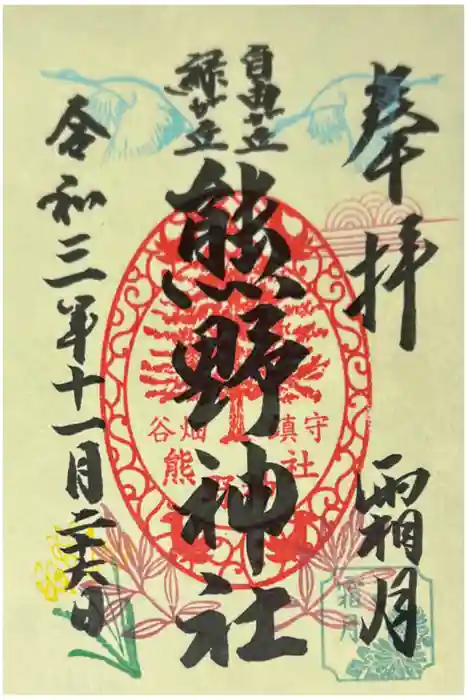 奉拝
霜月
自由が丘
緑が丘
熊野神社
令和三年十一月二十六日
谷畑 鎮守
熊野神社
霜月